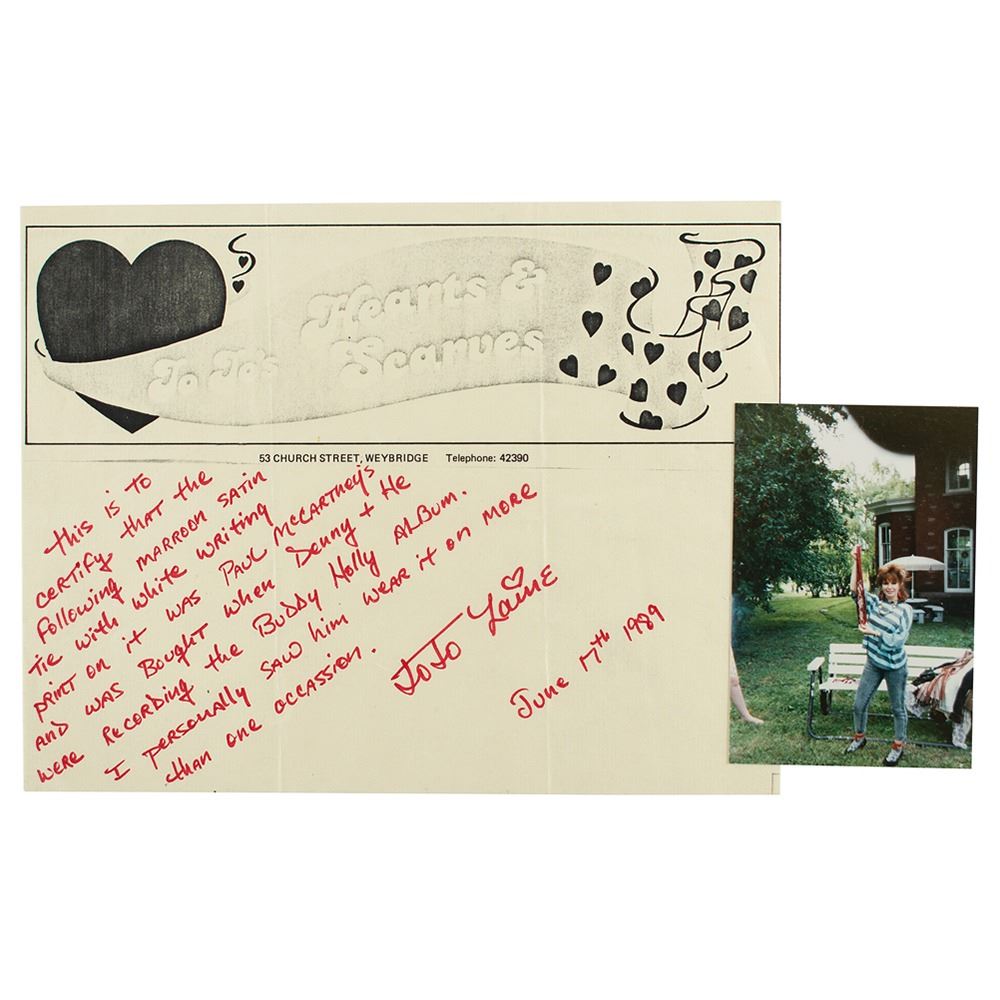 Hearts &
Jo Jo's Scarves
53 CHURCH STREET, WEYBRIDGE Telephone: 42390
this is to
certify that the
following marroon satin
tie with white writing
print on it was Paul McCartney's
and was bought when Denny + He
were recording the Buddy Holly Album.
I personally saw him wear it on more
than one occassion.
JoJo Laine
June 17th 1989